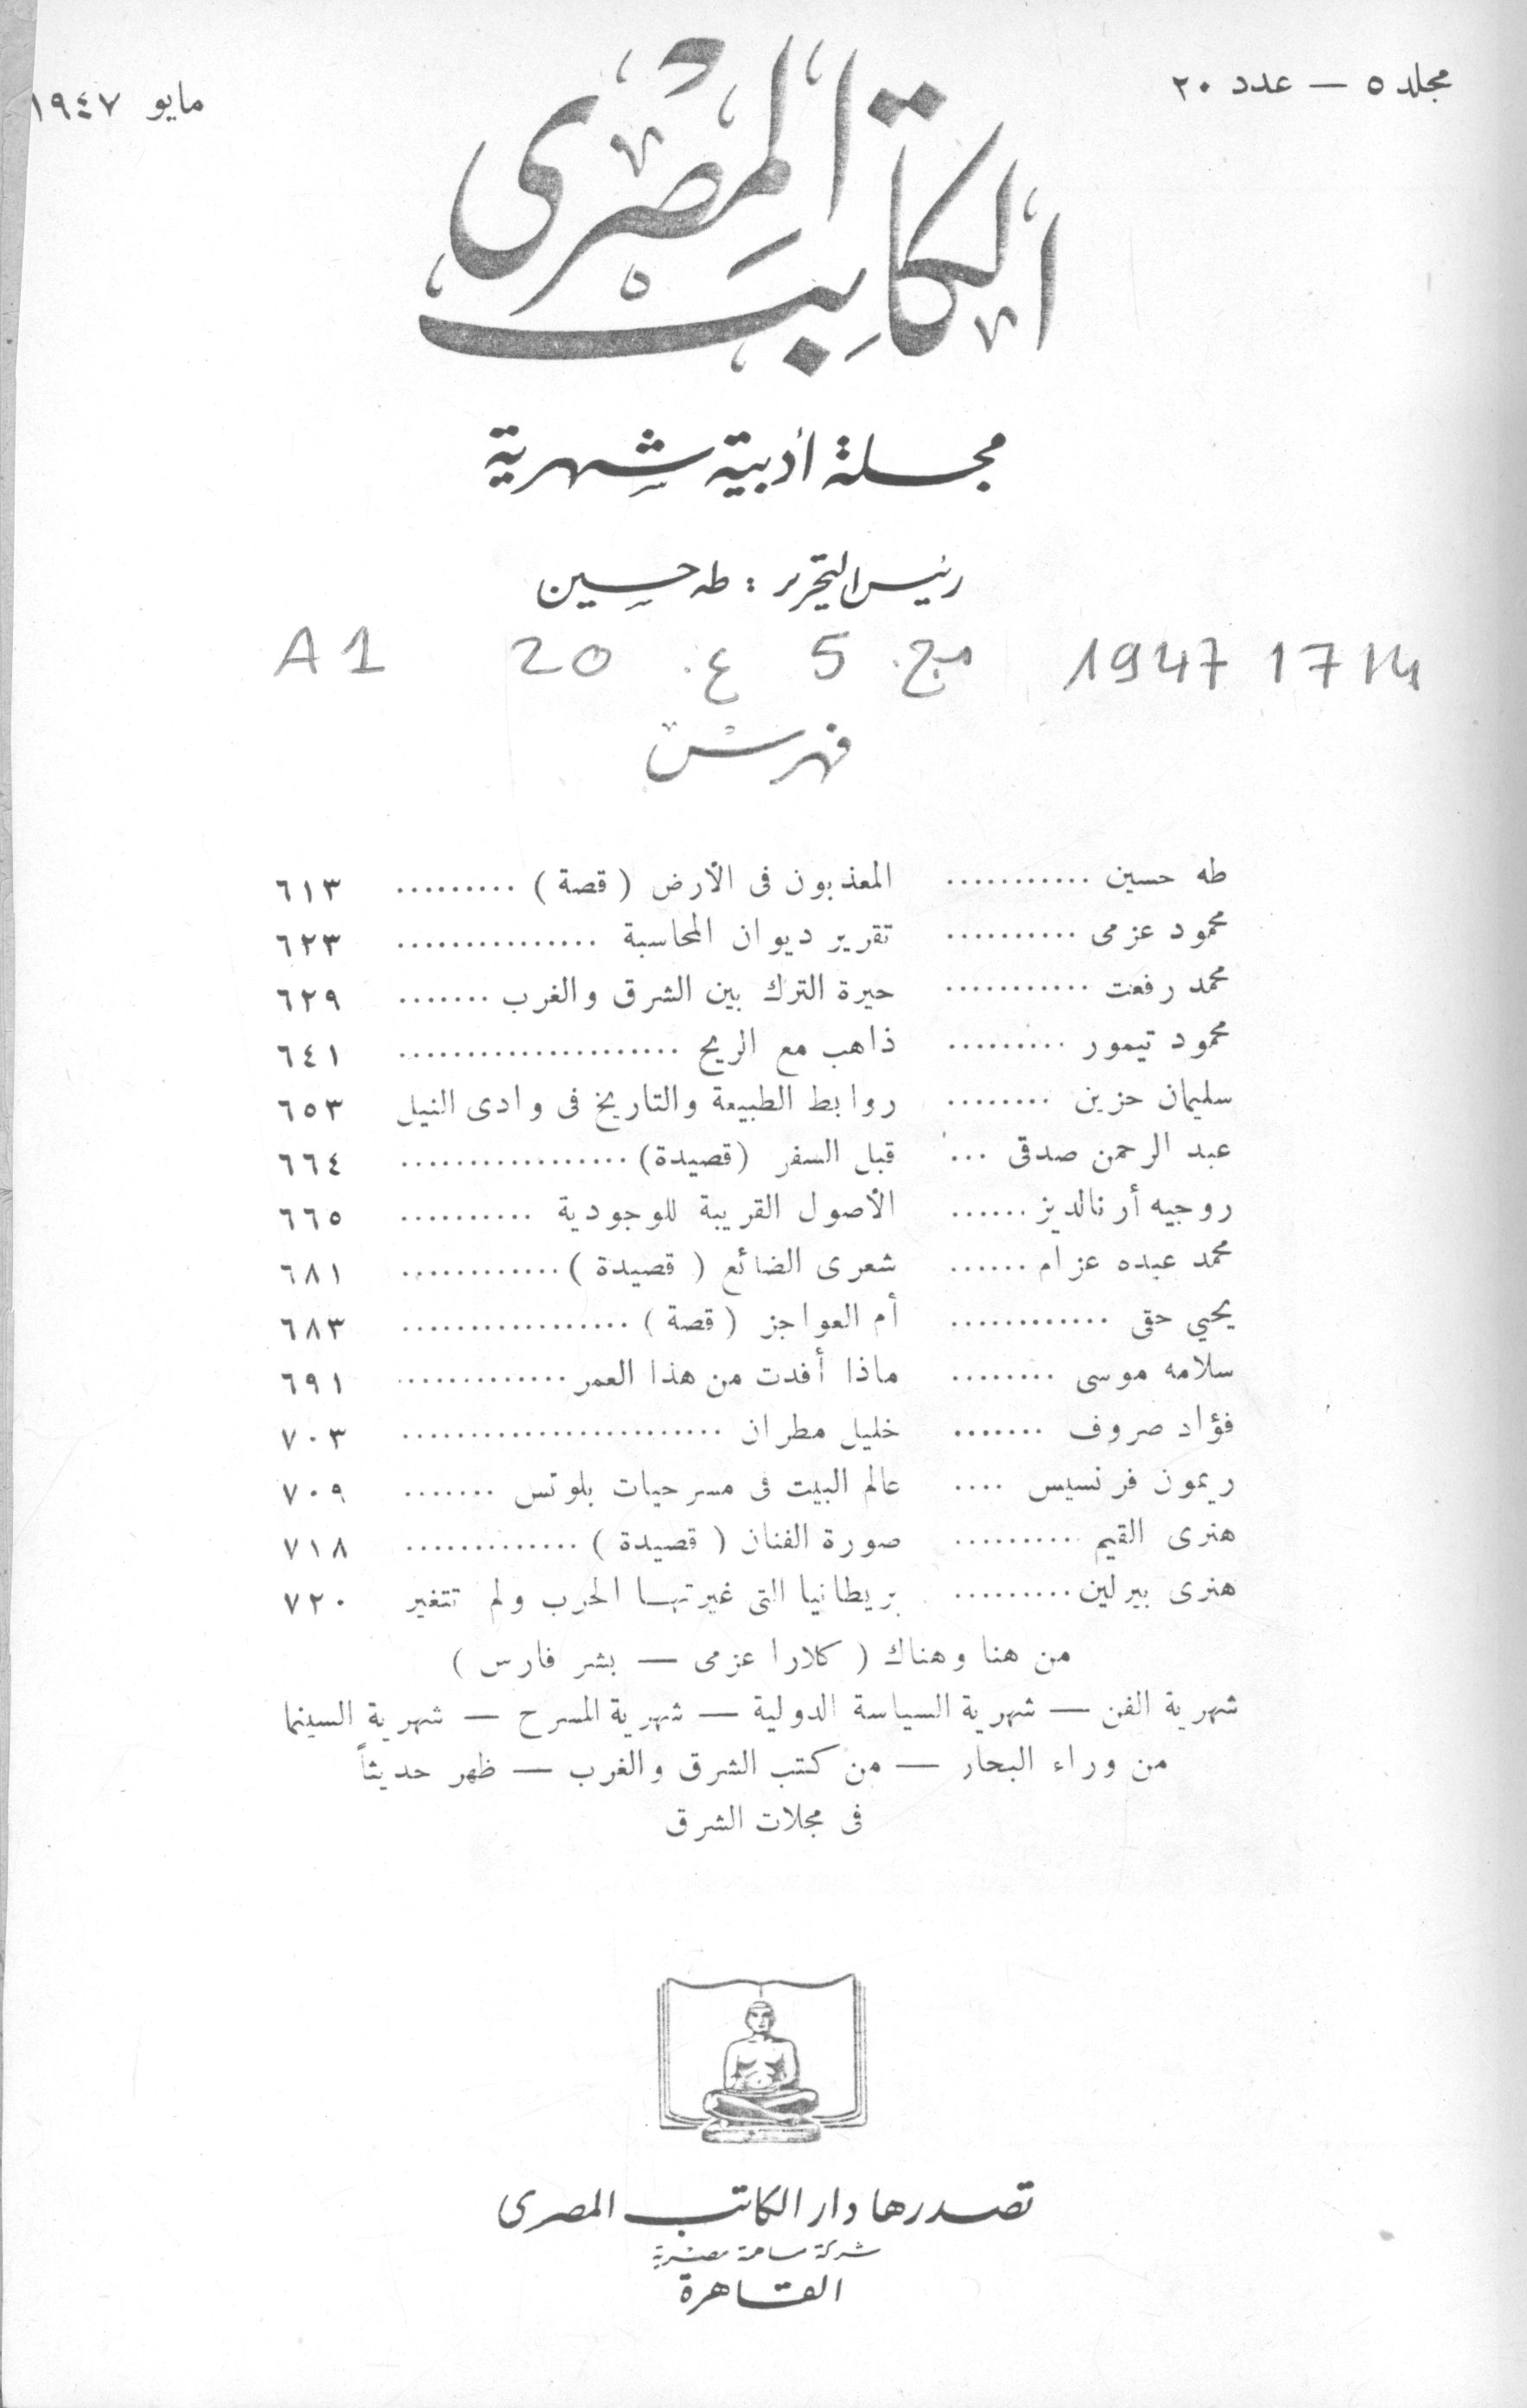 مجلد ٥ — عدد ٢٠
مايو ١٩٤٧
الكاتب المصرى
مجلة أدبية شهرية
رئيس التحرير : طه حسين
1947 1714 مج. 5 ع. 20 A1
فهرس
طه حسين ........... المعذبون فى الأرض ( قصة ) ......... ٦١٣
محمود عزمى .......... تقرير ديوان المحاسبة ............... ٦٢٣
محمد رفعت ........... حيرة الترك بين الشرق والغرب ....... ٦٢٩
محمود تيمور ......... ذاهب مع الريح ..................... ٦٤١
سليمان حزين ........ روابط الطبيعة والتاريخ فى وادى النيل ٦٥٣
عبد الرحمن صدقى ... قبل السفر (قصيدة) ................. ٦٦٤
روجيه أرنالديز ...... الأصول القريبة للوجودية .......... ٦٦٥
محمد عبده عزام ...... شعرى الضائع ( قصيدة ) ............ ٦٨١
يحيي حقى ............ أم العواجز ( قصة ) ................. ٦٨٣
سلامه موسى ........ ماذا أفدت من هذا العمر ............. ٦٩١
فؤاد صروف ....... خليل مطران ........................ ٧٠٣
ريمون فرنسيس .... عالم البيت فى مسرحيات بلوتس ....... ٧٠٩
هنرى القيم .......... صورة الفنان ( قصيدة ) ............. ٧١٨
هنرى بيرلين ......... بريطانيا التى غيرتها الحرب ولم تتغير ٧٢٠
من هنا وهناك ( كلارا عزمى — بشر فارس )
شهرية الفن — شهرية السياسة الدولية — شهرية المسرح — شهرية السينما
من وراء البحار — من كتب الشرق والغرب — ظهر حديثاً
فى مجلات الشرق
تصدرها دار الكاتب المصرى
شركة مساهمة مصرية
القاهرة